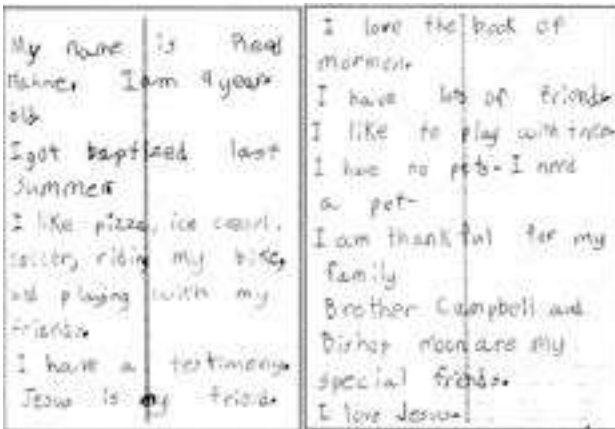 My name is
I am 9 year
old.
I got baptized last
summer.
I like pizza, ice cream,
soccer, riding my bike,
and playing with my
friends.
I have a testimony.
Jesus is my friend.
I love the book of
mormon.
I have lots of friends.
I like to play with them.
I have no pets. I need
a pet.
I am thankful for my
family
Brother Campbell and
Bishop moon are my
special friends.
I love Jesus.